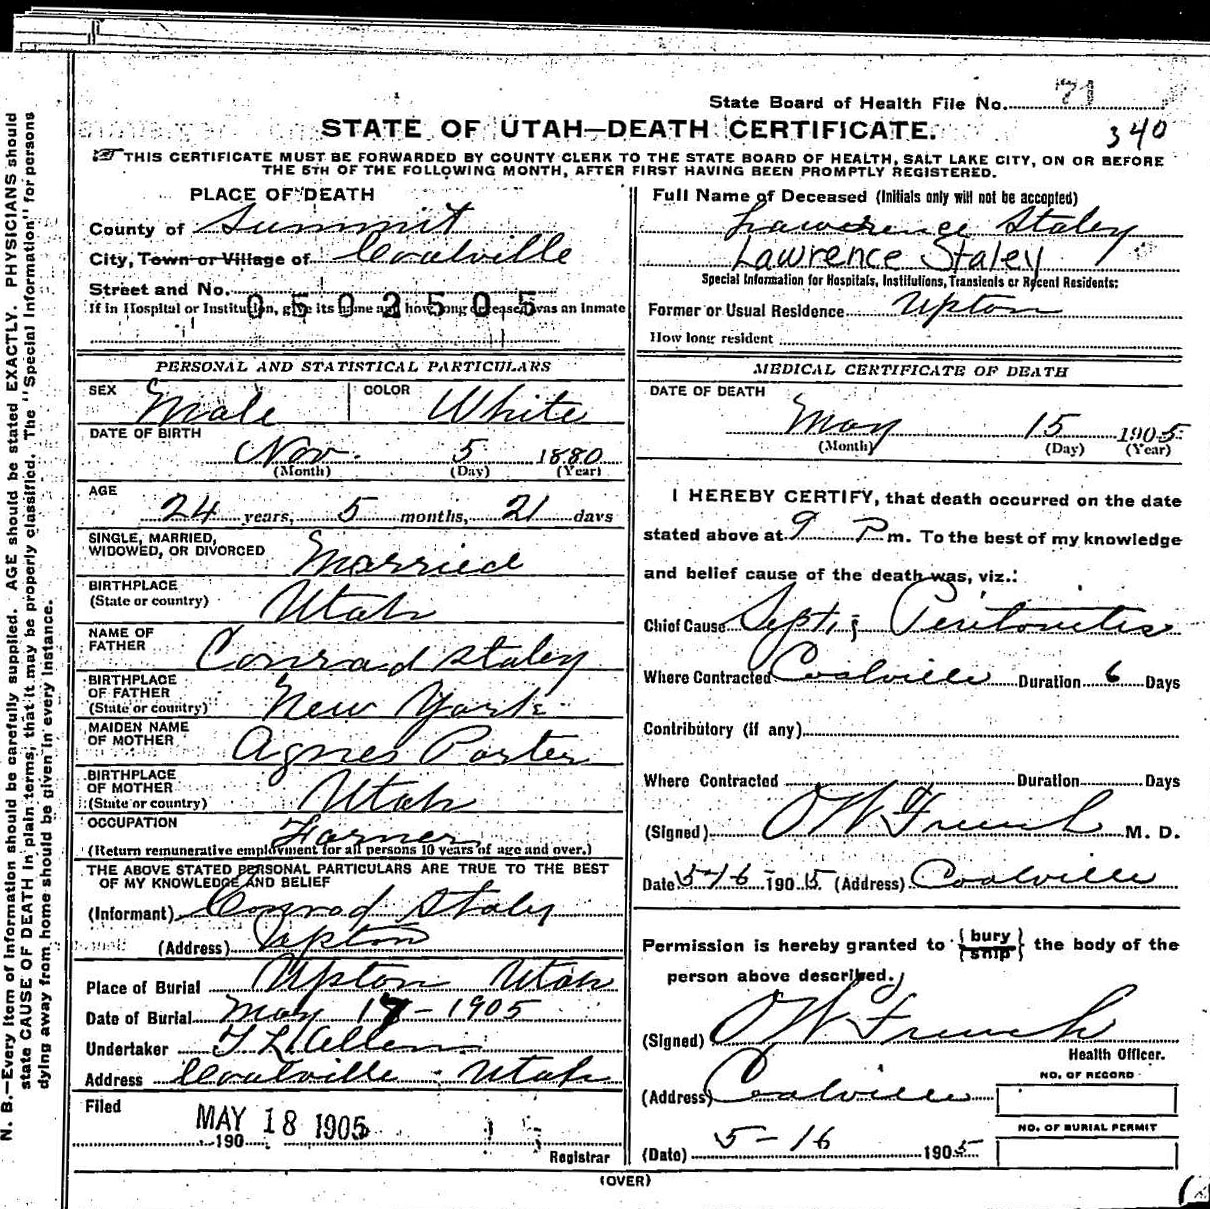 State Board of Health File No. 71
340
STATE OF UTAH—DEATH CERTIFICATE.
THIS CERTIFICATE MUST BE FORWARDED BY COUNTY CLERK TO THE STATE BOARD OF HEALTH, SALT LAKE CITY, ON OR BEFORE
THE 5TH OF THE FOLLOWING MONTH, AFTER FIRST HAVING BEEN PROMPTLY REGISTERED.
PLACE OF DEATH
County of Summit
City, Town or Village of Coalville
Street and No.
0502505
If in Hospital or Institution, give its name and how long deceased was an Inmate
PERSONAL AND STATISTICAL PARTICULARS
SEX Male COLOR White
DATE OF BIRTH
Nov. 5 1880
(Month) (Day) (Year)
AGE
24 years, 5 months, 21 days
SINGLE, MARRIED,
WIDOWED, OR DIVORCED Married
BIRTHPLACE
(State or country) Utah
NAME OF
FATHER Conrad Staley
BIRTHPLACE
OF FATHER
(State or country) New York
MAIDEN NAME
OF MOTHER Agnes Porter
BIRTHPLACE
OF MOTHER
(State or country) Utah
OCCUPATION Farmer
(Return remunerative employment for all persons 10 years of age and over.)
THE ABOVE STATED PERSONAL PARTICULARS ARE TRUE TO THE BEST
OF MY KNOWLEDGE AND BELIEF
(Informant) Conrad Staley
(Address) Upton
Place of Burial Upton Utah
Date of Burial May 17 - 1905
Undertaker T L Allen
Address Coalville - Utah
Filed
MAY 18 1905
190
Registrar
Full Name of Deceased (Initials only will not be accepted)
Lawerence Staley
Lawrence Staley
Special Information for Hospitals, Institutions, Transients or Recent Residents:
Former or Usual Residence Upton
How long resident
MEDICAL CERTIFICATE OF DEATH
DATE OF DEATH
May 15 1905
(Month) (Day) (Year)
I HEREBY CERTIFY, that death occurred on the date
stated above at 9 P m. To the best of my knowledge
and belief cause of the death was, viz.:
Chief Cause Septic Peritonitis
Where Contracted Coalville Duration 6 Days
Contributory (if any)
Where Contracted Duration Days
(Signed) O W French M. D.
Date 5-16-1905. (Address) Coalville
Permission is hereby granted to { bury / ship } the body of the
person above described.
(Signed) O W French
Health Officer.
NO. OF RECORD
(Address) Coalville
NO. OF BURIAL PERMIT
(Date) 5-16 1905
(OVER)
N. B.—Every item of information should be carefully supplied. AGE should be stated EXACTLY. PHYSICIANS should
state CAUSE OF DEATH in plain terms, that it may be properly classified. The "Special Information" for persons
dying away from home should be given in every instance.